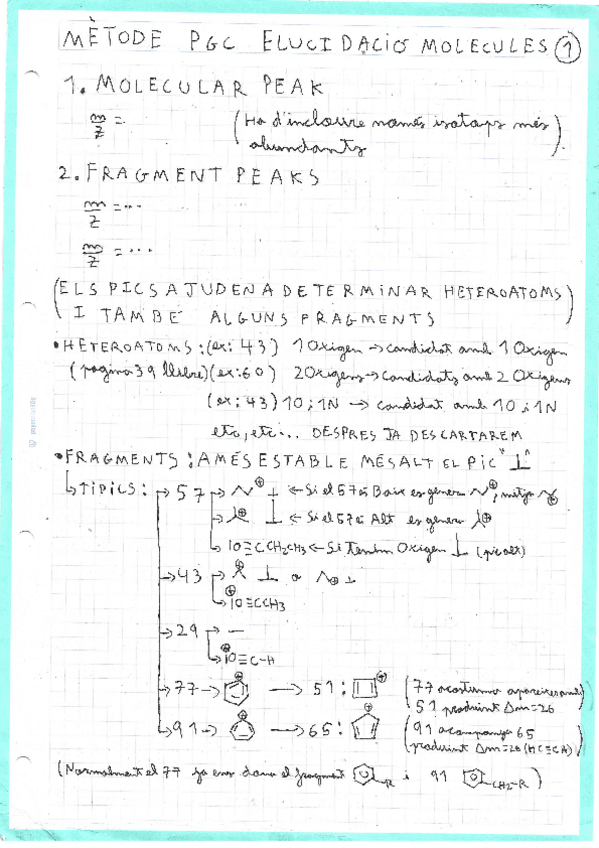 MÈTODE PGC ELUCIDACIÓ MOLECULES 1
1. MOLECULAR PEAK
m/z = (Ha d'incloure només isotops més
abundants)
2. FRAGMENT PEAKS
m/z = ...
m/z = ...
(ELS PICS AJUDEN A DETERMINAR HETEROATOMS
I TAMBÉ ALGUNS FRAGMENTS)
• HETEROATOMS: (ex: 43) 1 Oxigen → candidat amb 1 Oxigen
(pagina 39 llibre) (ex: 60) 2 Oxigens → candidats amb 2 Oxigens
(ex: 43) 1O i 1N → candidat amb 1O i 1N
etc, etc... DESPRES JA DESCARTAREM
• FRAGMENTS: A MÉS ESTABLE MÉS ALT EL PIC "⊥"
↳ TÍPICS: → 57 → ⊕ ⊥ ← Si el 57 és Baix es genera ⊕, mitja
→ ⊕ ⊥ ← Si el 57 és Alt es genera ⊕
→ IO≡CCH2CH3 ← Si Tenim Oxigen ⊥ (pic alt)
→ 43 → ⊕ ⊥ o ⊕ ⊥
↳ ⊕ IO≡CCH3
→ 29 → —
↳ ⊕ IO≡C-H
→ 77 → ⊕ → 51: ⊕ (77 acostuma apareixer amb
51 produint Δm=26)
→ 91 → ⊕ → 65: ⊕ (91 acompanya 65
produint Δm=26 (HC≡CH))
(Normalment el 77 ja ens dona el fragment -R i 91 CH2-R)